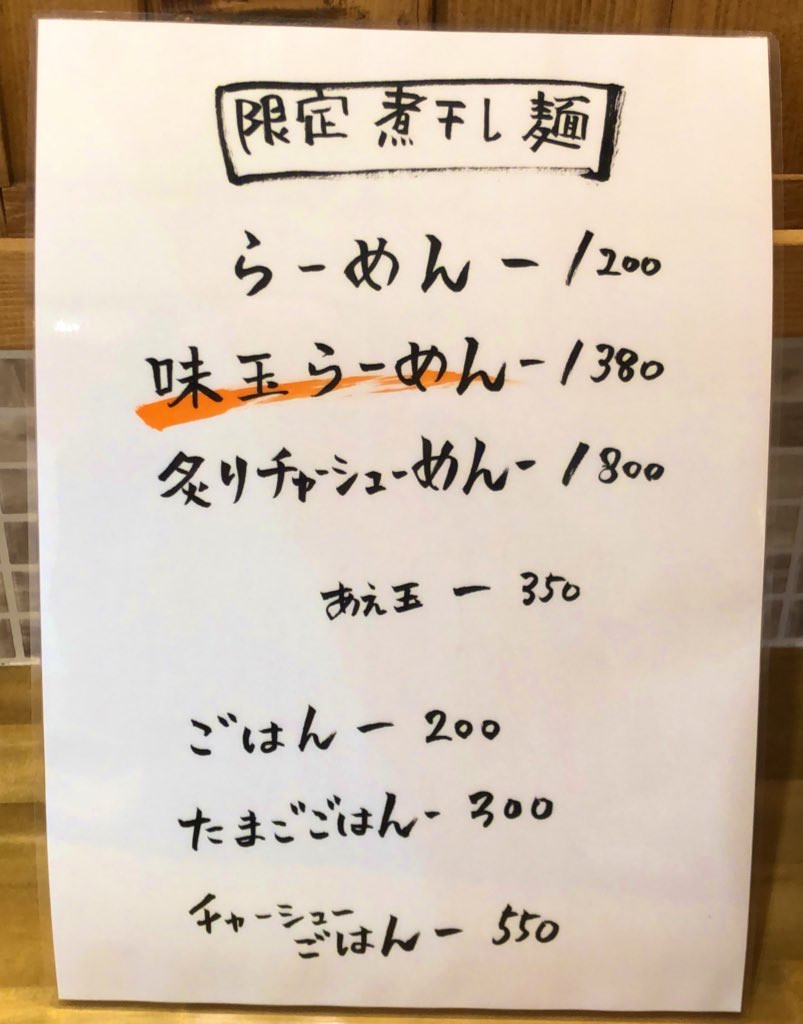 限定 煮干し麺
らーめん ー 1200
味玉らーめん ー 1380
炙りチャーシューめん ー 1800
あえ玉 ー 350
ごはん ー 200
たまごごはん ー 300
チャーシュー
ごはん ー 550